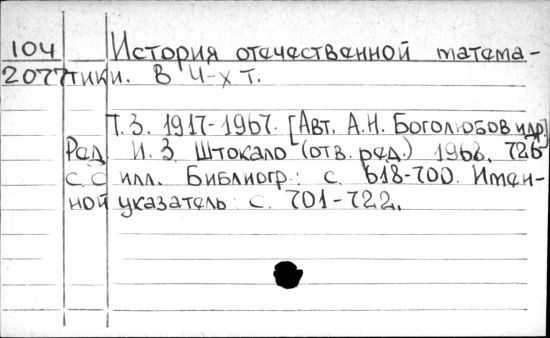 104 История отечественной матема-
2077 тики. В 4-х т.
Т. 3. 1917-1967. [Авт. А.Н. Боголюбов идр]
Ред И. З. Штокало (отв. ред.) 1968. 726
с. с илл. Библиогр: с. 618-700. Имен-
ной указатель с. 701-722.